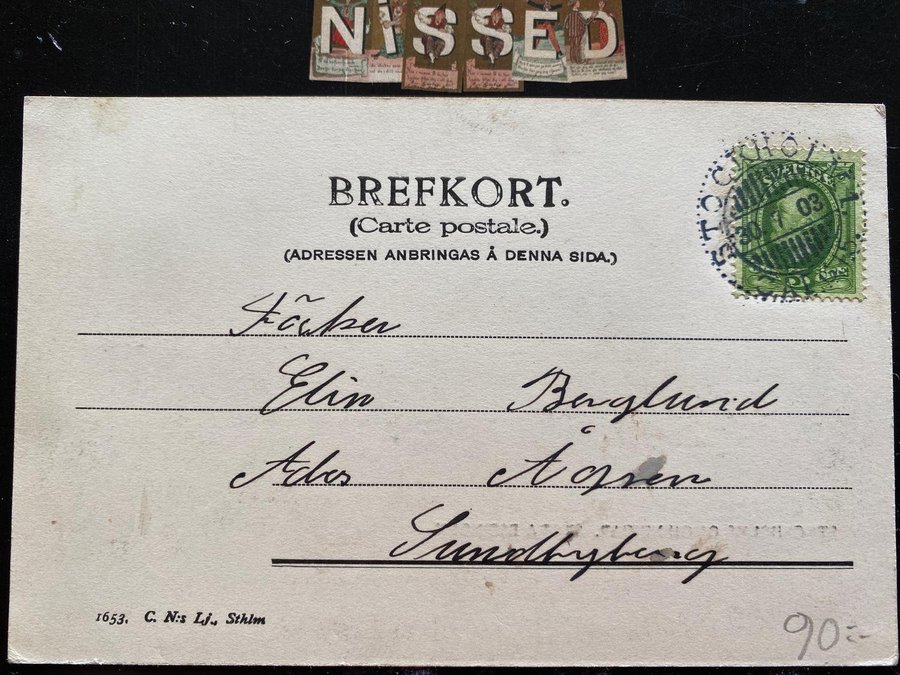 NISSED
BREFKORT.
(Carte postale.)
(ADRESSEN ANBRINGAS Å DENNA SIDA.)
STOCKHOLM
30 7 03
Elin Berglund
Adrs Ågren
Sundbyberg
1653. C. N:s Lj., Sthlm
90:-